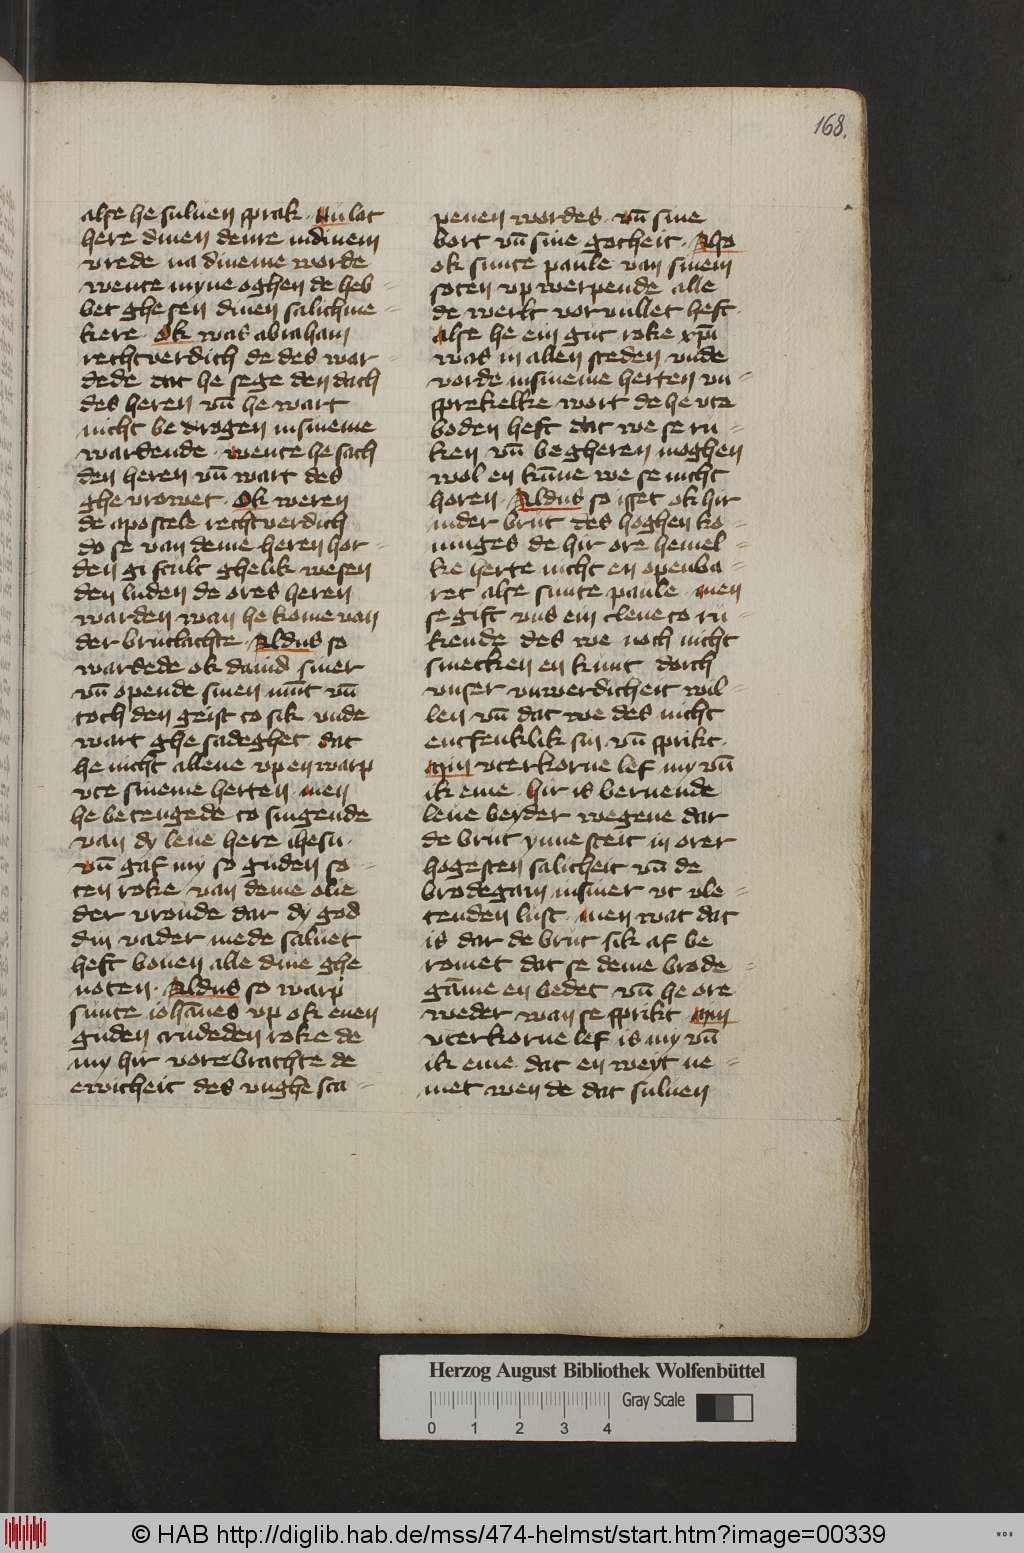 168.
alse he suluen sprak · Nu lat
here dinen denre in dinem
vrede na dineme worde
wente myne oghen de heb=
bet ghe sen dinen salichme=
kere · Ok was abraham
rechtverdich de des war=
dede dat he sege den dach
des heren vn̄ he wart
nicht be drogen in sineme
wardende · wente he sach
den heren vn̄ wart des
ghe vrowet · Ok weren
de apostele rechtverdich
do se van deme heren hor=
den gi scult ghelik wesen
den luden de ores heren
warden wan he kome van
der brutlachte · Aldus so
wardede ok dauid siner
vn̄ opende sinen mu̅t vn̄
toch den geist to sik vnde
wart ghe sadeghet · dat
he nicht allene vpen warp
vte sineme herten · men
he betengede to singende
van dy leue here ihesu ·
vn̄ gaf my so guden so=
ten roke van deme olie
der vroude dar dy god
din vader mede saluet
heft bouen alle dine ghe
noten · Aldus so warp
sunte ioha̅nes vp ok enen
guden crudeden roke de
my hir vore brachte de
ewicheit des vnghe sca=
penen wordes · vn̄ sine
bort vn̄ sine gotheit · Also
ok sunte paule van sinem
soten vp werpende alle
de werlt vorvullet heft ·
alse he ein gut roke xp̅i
was in allen steden vnde
vorde in sineme herten vn=
sprekelke wort de he vte
boden heft dat we se ru=
ken vn̄ be gheren moghen
wol en ku̅ne we se nicht
horen · Aldus so isset ok hir
in der brut des hoghen ko=
ninges de hir ore hemel=
ke herte nicht en openba=
ret alse sunte paule · men
se gift vns ein cleue to ru=
kende des we noch nicht
smecken en kunt dorch
vnser vnwerdicheit wil=
len vn̄ dat we des nicht
entfenklik sin · vn̄ sprikt ·
Myn vterkorne lef my vn̄
ik eme · hir is beruende
leue beyder wegene dar
de brut ynne steit in orer
hogesten salicheit vn̄ de
brodegam in siner vt vle=
tenden lust · men wat dat
is dar de brut sik af be
romet dat se deme brode=
ga̅me en bedet vn̄ he ore
weder wan se sprikt Myn
vterkorne lef is my vn̄
ik eme · dat en weyt ne=
met wen de dat suluen
Herzog August Bibliothek Wolfenbüttel
0 1 2 3 4 Gray Scale
© HAB http://diglib.hab.de/mss/474-helmst/start.htm?image=00339